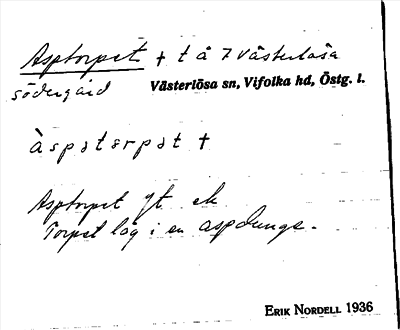 Asptorpet + t å 7 Västerlösa
södergård
Västerlösa sn, Vifolka hd, Östg. l.
àspətərpət +
Asptorpet gt ek
Torpet låg i en aspdunge.
ERIK NORDELL 1936